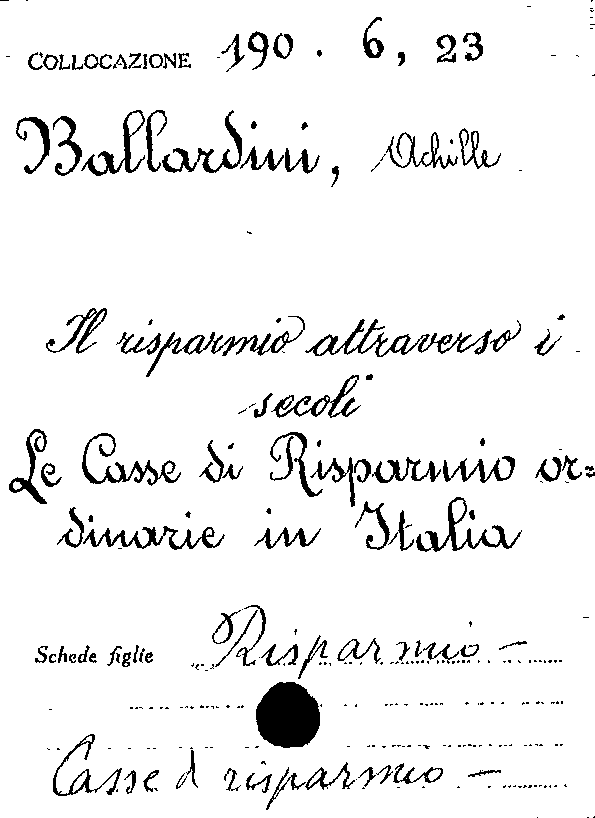 COLLOCAZIONE 190 . 6, 23
Ballardini, Achille
Il risparmio attraverso i
secoli
Le Casse di Risparmio or=
dinarie in Italia
Schede figlie Risparmio —
Casse d risparmio —